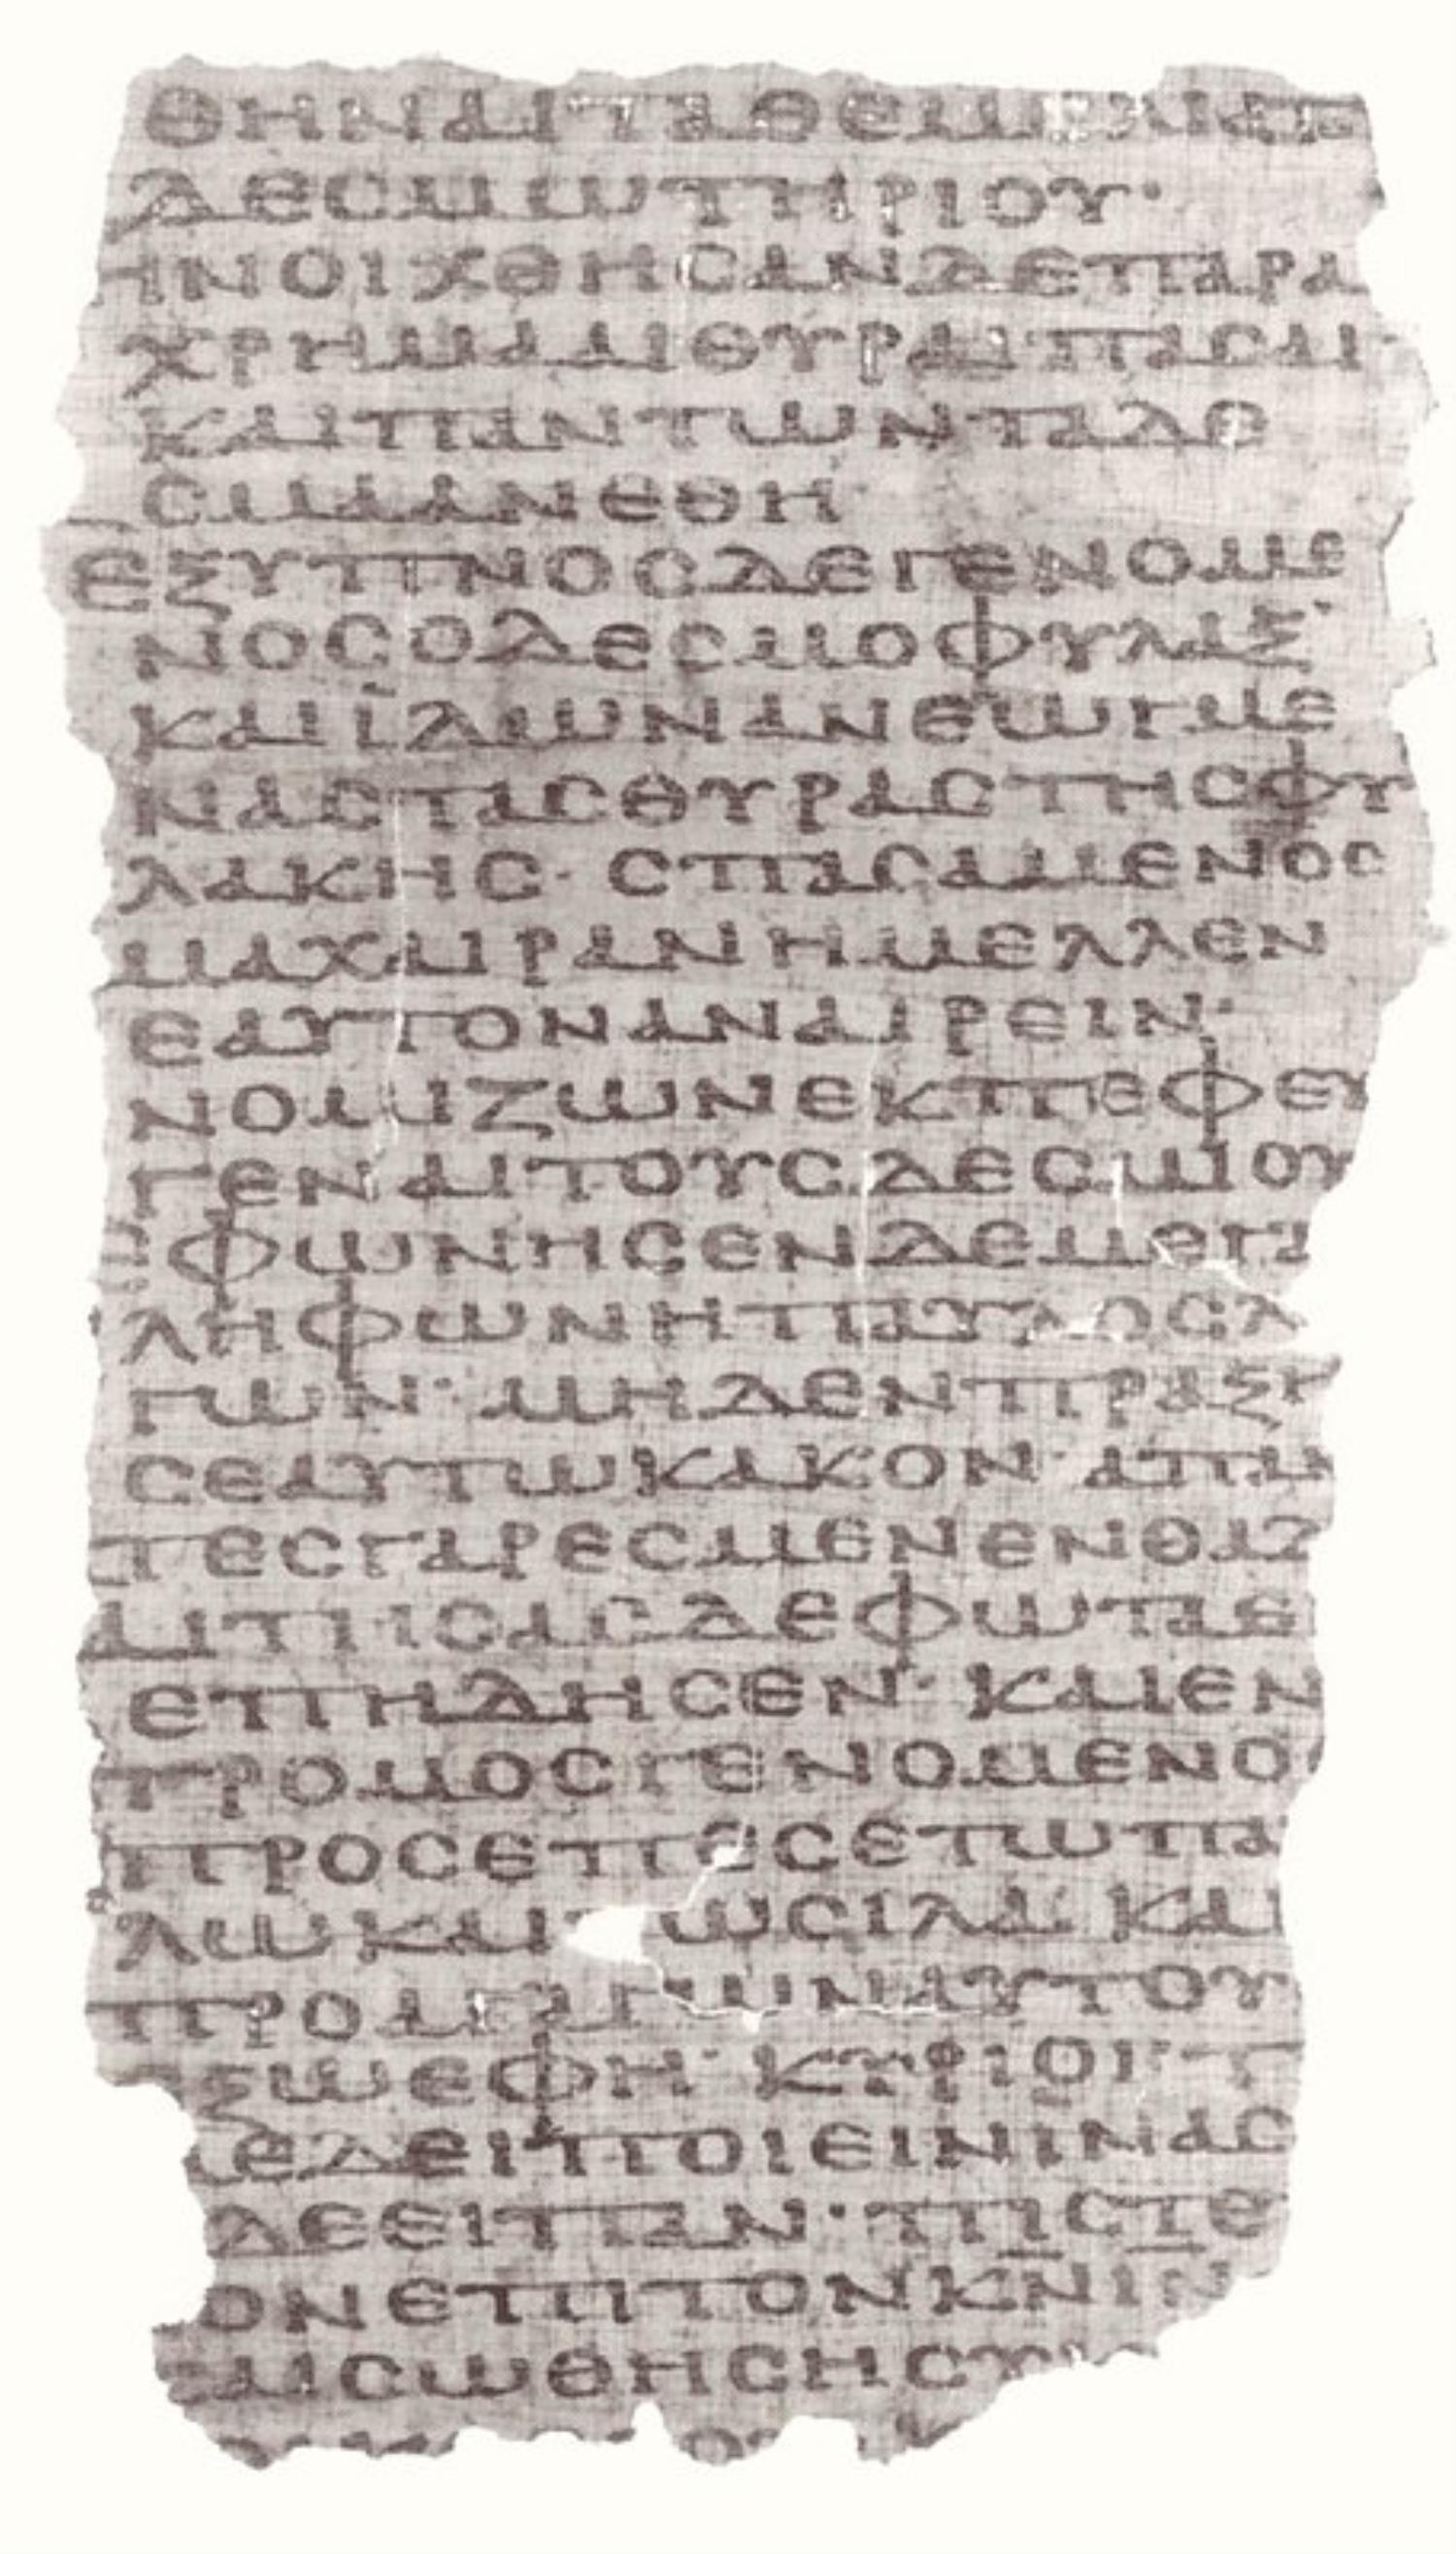 ΘΗΝΑΙΤΑΘΕΜΕ
ΔΕΣΜΩΤΗΡΙΟΥ·
ΗΝΟΙΧΘΗϹΑΝΔΕΠΑΡΑ
ΧΡΗΜΑΑΙΘΥΡΑΙΠΑϹΑΙ·
ΚΑΙΠΑΝΤΩΝΤΑΔΕ
ϹΜΑΑΝΕΘΗ
ΕΞΥΠΝΟϹΔΕΓΕΝΟΜΕ
ΝΟϹΟΔΕϹΜΟΦΥΛΑΞ·
ΚΑΙΪΔΩΝΑΝΕΩΓΜΕ
ΝΑϹΤΑϹΘΥΡΑϹΤΗϹΦΥ
ΛΑΚΗϹ· ϹΠΑϹΑΜΕΝΟϹ
ΜΑΧΑΙΡΑΝΗΜΕΛΛΕΝ
ΕΑΥΤΟΝΑΝΑΙΡΕΙΝ·
ΝΟΜΙΖΩΝΕΚΠΕΦΕΥ
ΓΕΝΑΙΤΟΥϹΔΕϹΜΙΟΥ
ΦΩΝΗϹΕΝΔΕΜΕΓΑ
ΛΗΦΩΝΗΠΑΥΛΟϹΛ
ΓΩΝ· ΜΗΔΕΝΠΡΑΞΗ
ϹΕΑΥΤΩΚΑΚΟΝ·ΑΠΑ
ΤΕϹΓΑΡΕϹΜΕΝΕΝΘΑ
ΑΙΤΗϹΑϹΔΕΦΩΤΑΕΙ
ΕΠΗΔΗϹΕΝ· ΚΑΙΕΝ
ΤΡΟΜΟϹΓΕΝΟΜΕΝΟ
ΠΡΟϹΕΠΕϹΕΤΩΠΑ
ΛΩΚΑΙΤΩϹΙΛΑ· ΚΑΙ
ΠΡΟΑΓΑΓΩΝΑΥΤΟΥ
ΞΩΕΦΗ· ΚΥΡΙΟΙ·Τ
ΕΔΕΙΠΟΙΕΙΝΙΝΑϹ
ΔΕΕΙΠΑΝ·ΠΙϹΤΕ
ΟΝΕΠΙΤΟΝΚ̅Ν̅ΙΝ
ΑΙϹΩΘΗϹΗϹΥ